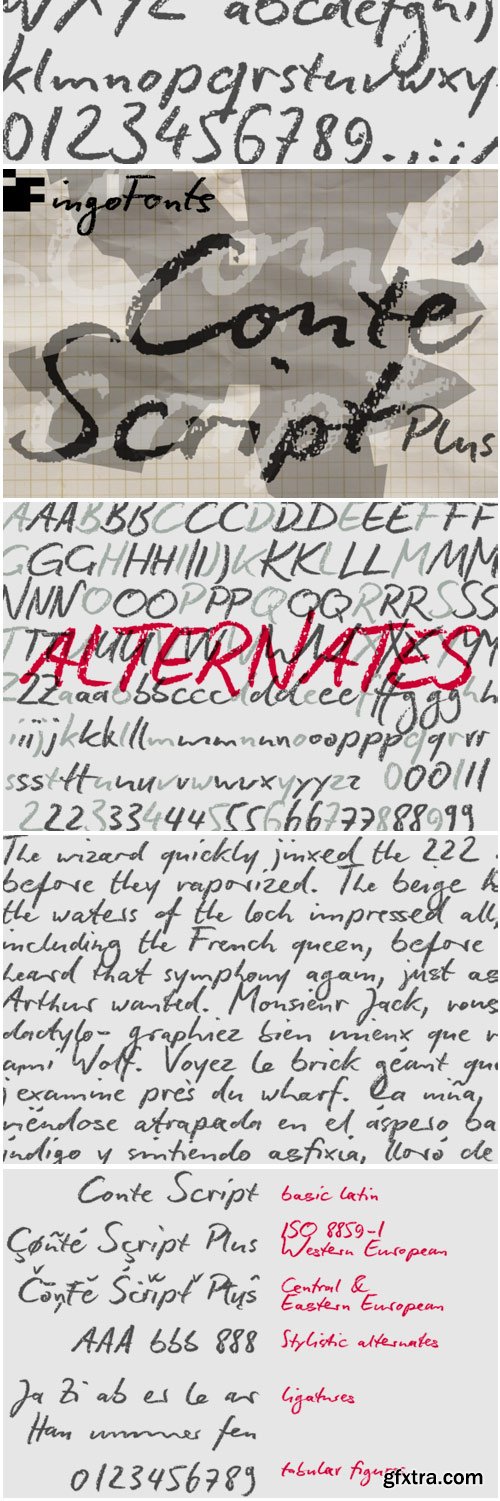 WXYZ abcdefghij
klmnopqrstuvwxy
0123456789.,:;/
ingoFonts
Conté
Script Plus
AAABBBCCCDDDEEEFFF
GGGHHHIIIJKKKLLLMMM
NNNOOOPPPQQQRRRSSS
ALTERNATES
222333444555666777888999
The wizard quickly jinxed the 222
before they vaporized. The beige
the waters of the loch impressed all,
including the French queen, before
heard that symphony again, just as
Arthur wanted. Monsieur Jack, vous
dactylo- graphiez bien mieux que
ami Wolf. Voyez le brick géant que
j'examine près du wharf. La niña,
viéndose atrapada en el áspero ba
índigo y sintiendo asfixia, lloró de
Conte Script basic latin
Çøñté Sçript Plus ISO 8859-1
Western European
Central &
Eastern European
AAA bbb 888 Stylistic alternates
Ja Zi ab er le ar ligatures
Han fen
0123456789 tabular figures
gfxtra.com